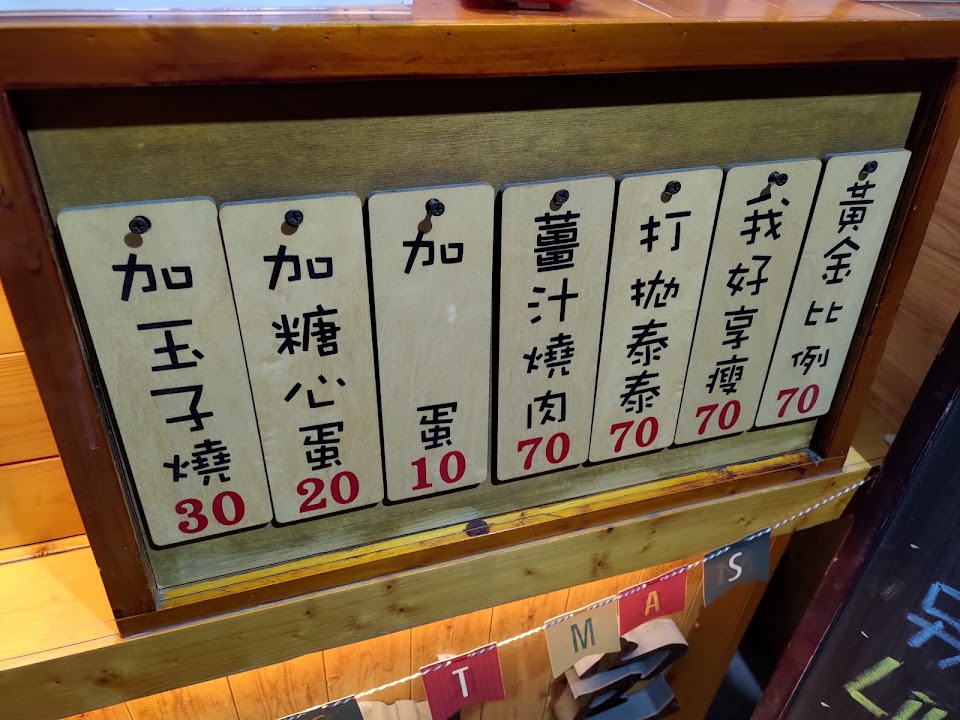 黃金比例
70
我好享瘦
70
打拋泰泰
70
薑汁燒肉
70
加蛋
10
加糖心蛋
20
加玉子燒
30
T
M
A
S